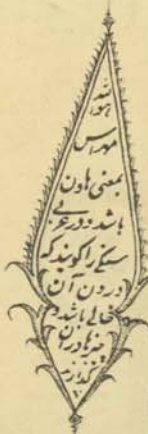 هوالله
مهراس
بمعنی هاون
باشد و در عربی
سنگی را گویند که
درون آن
خالی باشد و
چیزها در آن